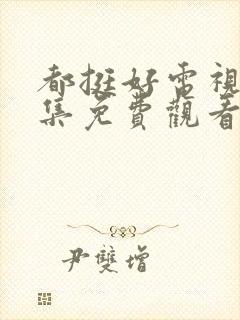 都挺好電視
集免費觀看
尹雙增